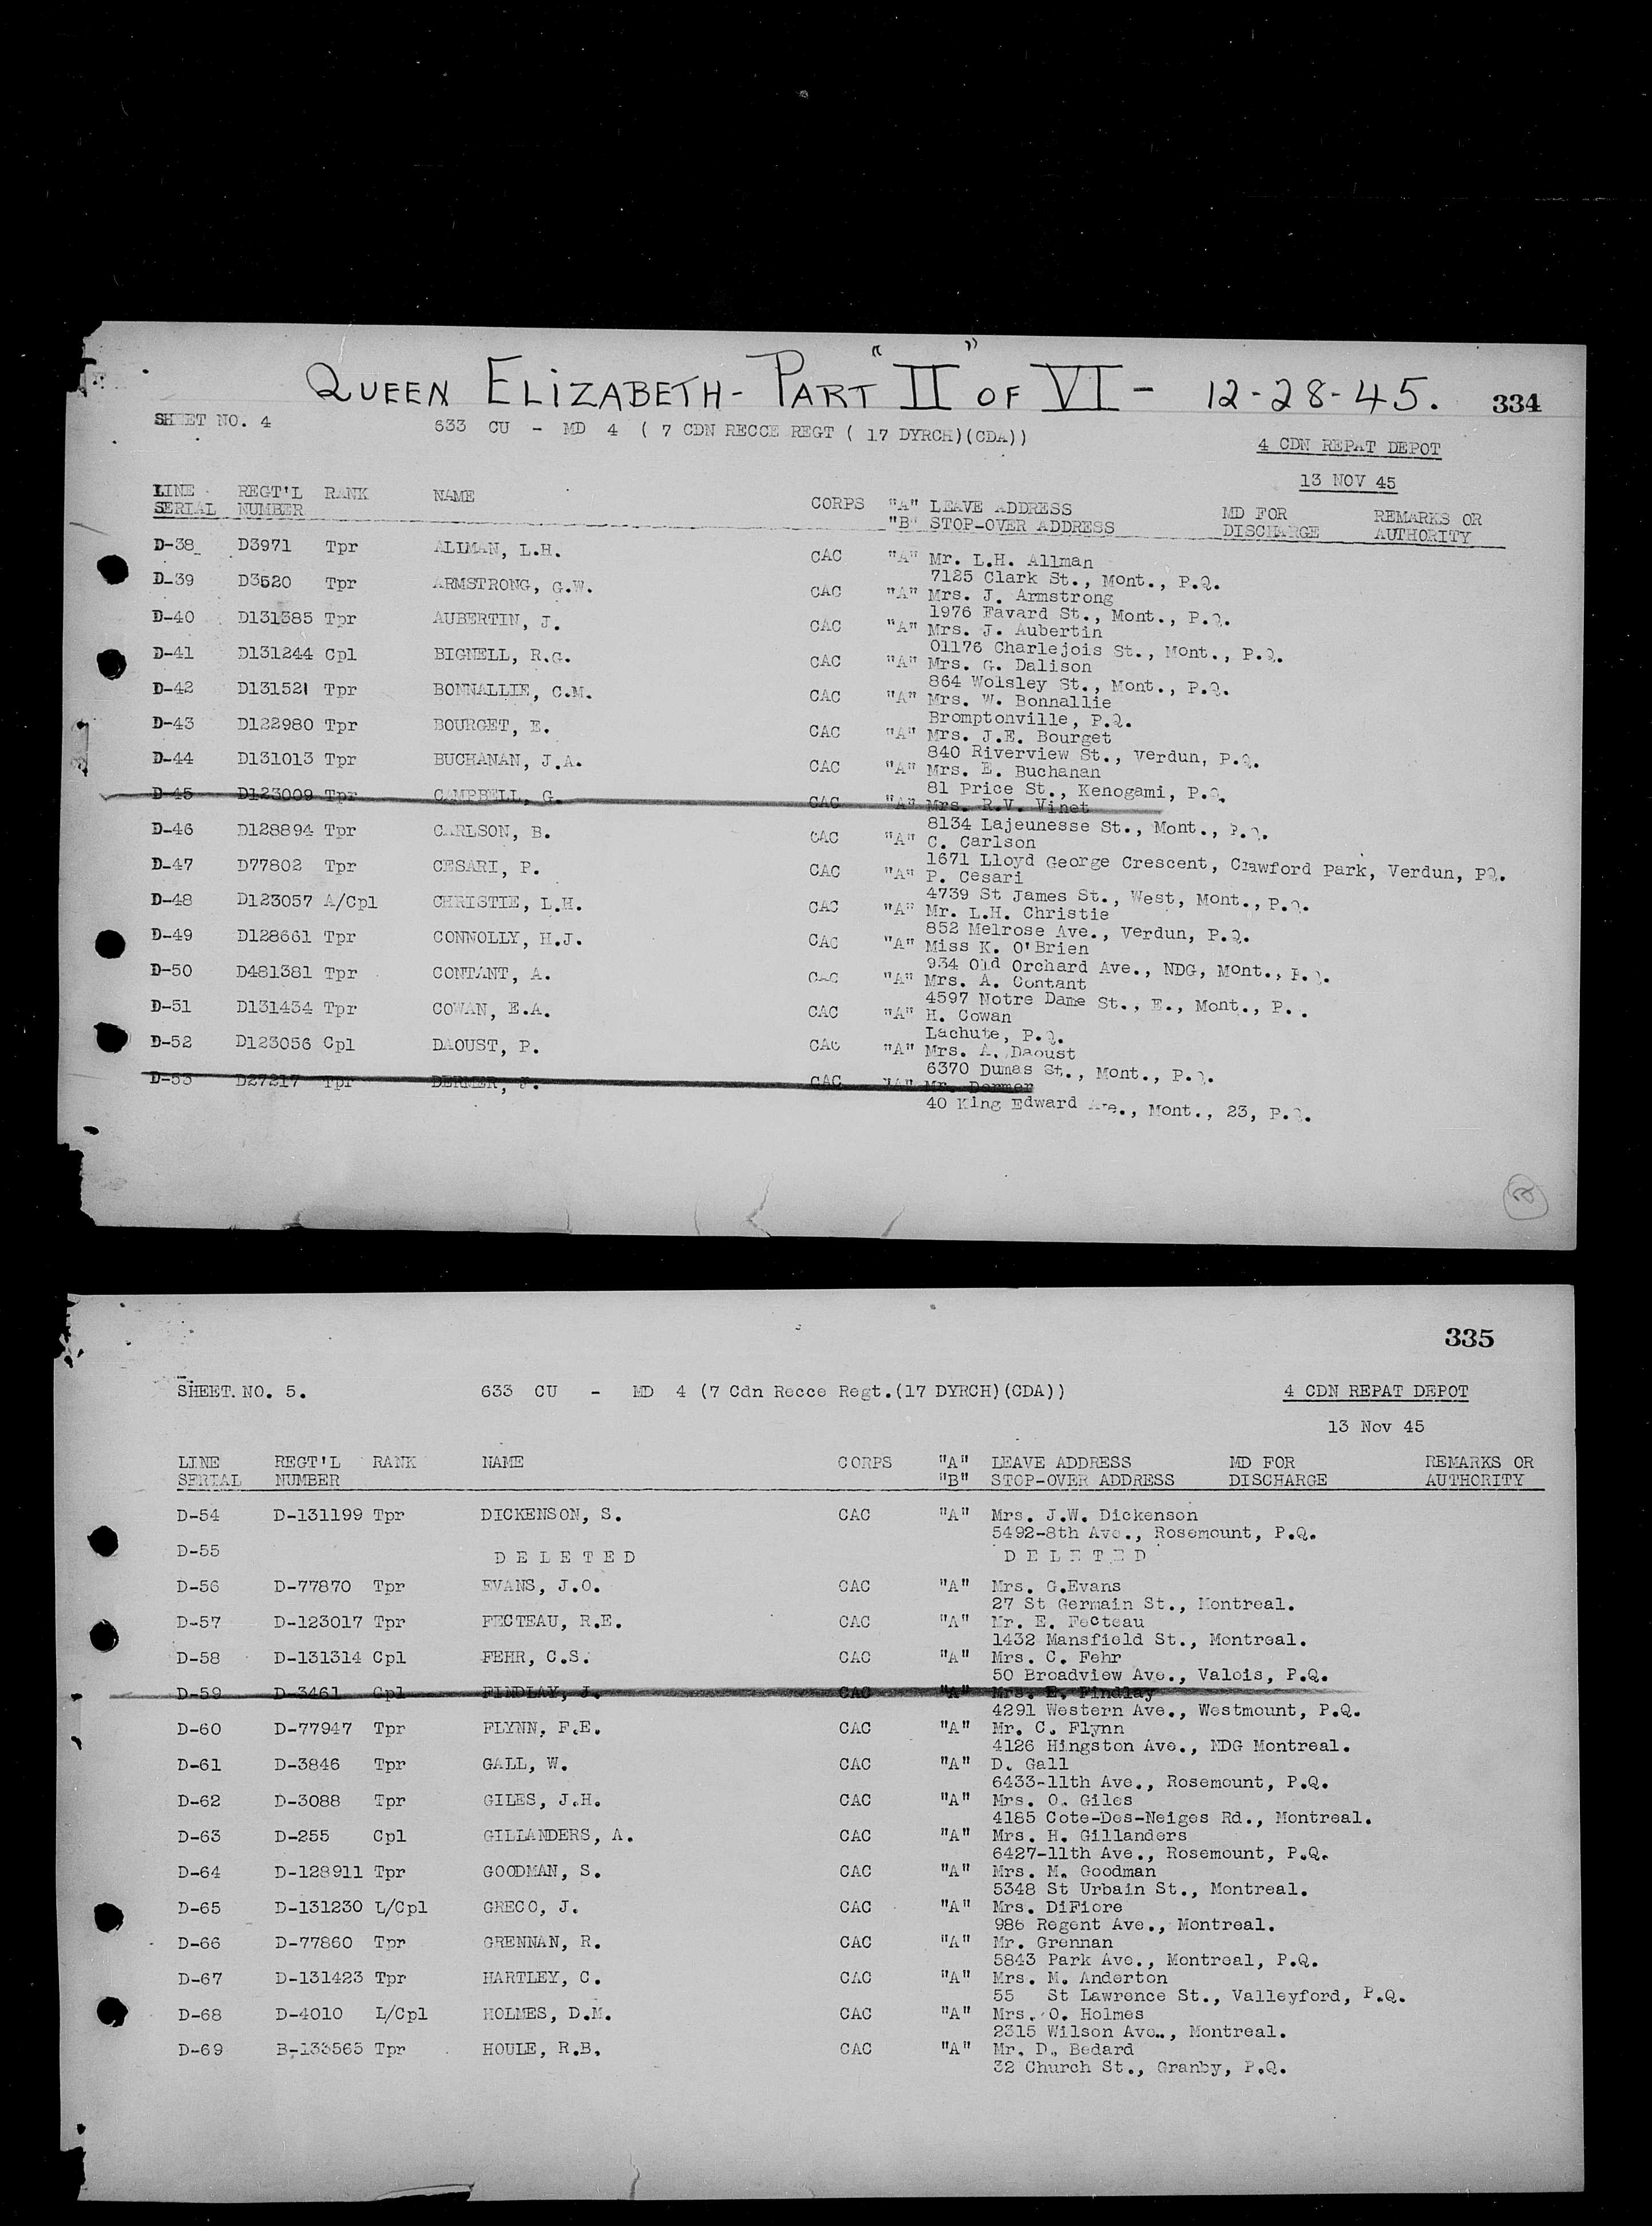 QUEEN ELIZABETH - PART "II" OF VI - 12-28-45. 334
SHEET NO. 4 633 CU - MD 4 ( 7 CDN RECCE REGT ( 17 DYRCH)(CDA))
4 CDN REPAT DEPOT
13 NOV 45
LINE REGT'L RANK NAME CORPS "A" LEAVE ADDRESS MD FOR REMARKS OR
SERIAL NUMBER "B" STOP-OVER ADDRESS DISCHARGE AUTHORITY
D-38 D3971 Tpr ALLMAN, L.H. CAC "A" Mr. L.H. Allman
7125 Clark St., Mont., P.Q.
D-39 D3520 Tpr ARMSTRONG, G.W. CAC "A" Mrs. J. Armstrong
1976 Favard St., Mont., P.Q.
D-40 D131385 Tpr AUBERTIN, J. CAC "A" Mrs. J. Aubertin
01176 Charlejois St., Mont., P.Q.
D-41 D131244 Cpl BIGNELL, R.G. CAC "A" Mrs. G. Dalison
864 Wolsley St., Mont., P.Q.
D-42 D131521 Tpr BONNALLIE, C.M. CAC "A" Mrs. W. Bonnallie
Bromptonville, P.Q.
D-43 D122980 Tpr BOURGET, E. CAC "A" Mrs. J.E. Bourget
840 Riverview St., Verdun, P.Q.
D-44 D131013 Tpr BUCHANAN, J.A. CAC "A" Mrs. E. Buchanan
81 Price St., Kenogami, P.Q.
D-45 D123009 Tpr CAMPBELL, G. CAC "A" Mrs. R.V. Vinet
8134 Lajeunesse St., Mont., P.Q.
D-46 D128894 Tpr CARLSON, B. CAC "A" C. Carlson
1671 Lloyd George Crescent, Crawford Park, Verdun, PQ.
D-47 D77802 Tpr CESARI, P. CAC "A" P. Cesari
4739 St James St., West, Mont., P.Q.
D-48 D123057 A/Cpl CHRISTIE, L.H. CAC "A" Mr. L.H. Christie
852 Melrose Ave., Verdun, P.Q.
D-49 D128661 Tpr CONNOLLY, H.J. CAC "A" Miss K. O'Brien
934 Old Orchard Ave., NDG, Mont., P.Q.
D-50 D481381 Tpr CONTANT, A. CAC "A" Mrs. A. Contant
4597 Notre Dame St., E., Mont., P..
D-51 D131434 Tpr COWAN, E.A. CAC "A" H. Cowan
Lachute, P.Q.
D-52 D123056 Cpl DAOUST, P. CAC "A" Mrs. A. Daoust
6370 Dumas St., Mont., P.Q.
D-53 D27217 Tpr DERMER, J. CAC "A" Mr. Dermer
40 King Edward Ave., Mont., 23, P.Q.
2
335
SHEET. NO. 5. 633 CU - MD 4 (7 Cdn Recce Regt.(17 DYRCH)(CDA)) 4 CDN REPAT DEPOT
13 Nov 45
LINE REGT'L RANK NAME CORPS "A" LEAVE ADDRESS MD FOR REMARKS OR
SERIAL NUMBER "B" STOP-OVER ADDRESS DISCHARGE AUTHORITY
D-54 D-131199 Tpr DICKENSON, S. CAC "A" Mrs. J.W. Dickenson
5492-8th Ave., Rosemount, P.Q.
D-55 D E L E T E D D E L E T E D
D-56 D-77870 Tpr EVANS, J.O. CAC "A" Mrs. G.Evans
27 St Germain St., Montreal.
D-57 D-123017 Tpr FECTEAU, R.E. CAC "A" Mr. E. Fecteau
1432 Mansfield St., Montreal.
D-58 D-131314 Cpl FEHR, C.S. CAC "A" Mrs. C. Fehr
50 Broadview Ave., Valois, P.Q.
D-59 D-3461 Cpl FINDLAY, J. CAC "A" Mrs. E. Findlay
4291 Western Ave., Westmount, P.Q.
D-60 D-77947 Tpr FLYNN, F.E. CAC "A" Mr. C. Flynn
4126 Hingston Ave., NDG Montreal.
D-61 D-3846 Tpr GALL, W. CAC "A" D. Gall
6433-11th Ave., Rosemount, P.Q.
D-62 D-3088 Tpr GILES, J.H. CAC "A" Mrs. O. Giles
4185 Cote-Des-Neiges Rd., Montreal.
D-63 D-255 Cpl GILLANDERS, A. CAC "A" Mrs. H. Gillanders
6427-11th Ave., Rosemount, P.Q.
D-64 D-128911 Tpr GOODMAN, S. CAC "A" Mrs. M. Goodman
5348 St Urbain St., Montreal.
D-65 D-131230 L/Cpl GRECO, J. CAC "A" Mrs. DiFiore
986 Regent Ave., Montreal.
D-66 D-77860 Tpr GRENNAN, R. CAC "A" Mr. Grennan
5843 Park Ave., Montreal, P.Q.
D-67 D-131423 Tpr HARTLEY, C. CAC "A" Mrs. M. Anderton
55 St Lawrence St., Valleyford, P.Q.
D-68 D-4010 L/Cpl HOLMES, D.M. CAC "A" Mrs. O. Holmes
2315 Wilson Ave., Montreal.
D-69 B-133565 Tpr HOULE, R.B. CAC "A" Mr. D. Bedard
32 Church St., Granby, P.Q.